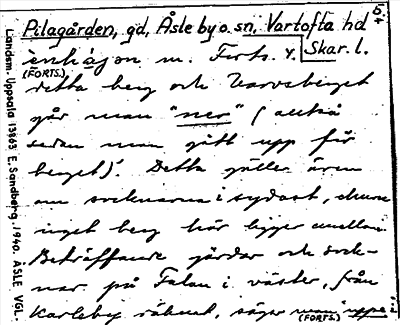 Pilagården, gd, Åsle by o. sn, Vartofta hd
Skar. l.
6.
(FORTS.)
detta berg och Varvsberget
går man "ner" (alltså
sedan man gått upp för
berget). Detta gäller även
om socknarna i sydost, ehuru
inget berg här ligger emellan.
Beträffande gårdar och sock-
nar på Falan i väster, från
Karleby räknat, säger man uppe i
(FORTS.)
Landsm. Uppsala 13663 E. Sandberg. 1940. ÅSLE VGL.